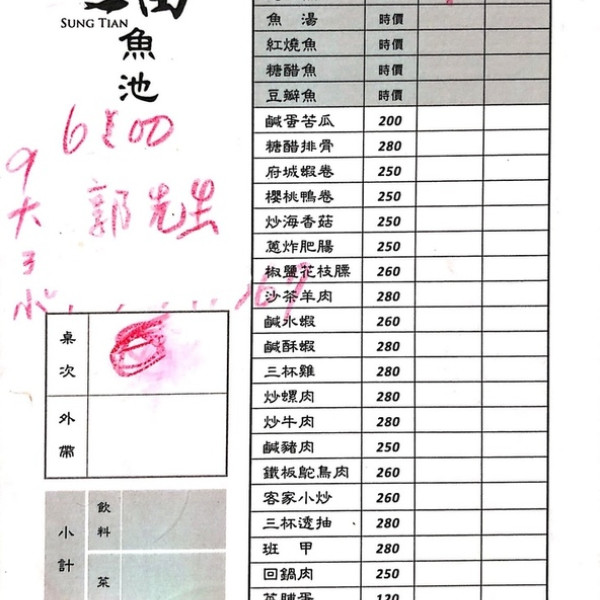 SUNG TIAN
魚池
6:00
郭先生
9大
3小
魚 湯 時價
紅燒魚 時價
糖醋魚 時價
豆瓣魚 時價
鹹蛋苦瓜 200
糖醋排骨 280
府城蝦卷 250
櫻桃鴨卷 250
炒海香菇 250
蔥炸肥腸 250
椒鹽花枝膘 260
沙茶羊肉 280
鹹水蝦 260
鹹酥蝦 280
三杯雞 280
炒螺肉 280
炒牛肉 280
鹹豬肉 250
鐵板鴕鳥肉 260
客家小炒 260
三杯透抽 280
班 甲 280
回鍋肉 250
菜脯蛋 120
桌次
外帶
小計
飲料
菜